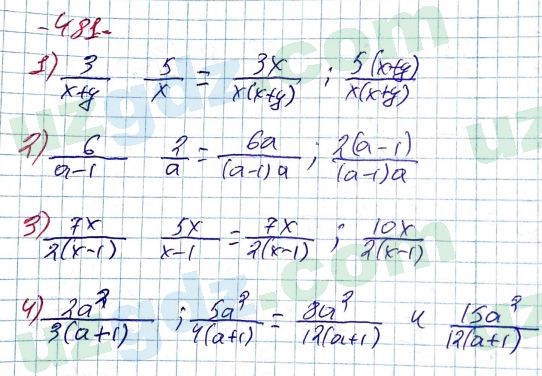 -481-
1) 3/(x+y) 5/x = 3x/(x(x+y)) ; 5(x+y)/(x(x+y))
2) 6/(a-1) 2/a = 6a/((a-1)a) ; 2(a-1)/((a-1)a)
3) 7x/(2(x-1)) 5x/(x-1) = 7x/(2(x-1)) ; 10x/(2(x-1))
4) 2a²/(3(a+1)) ; 5a²/(4(a+1)) = 8a²/(12(a+1)) и 15a²/(12(a+1))
uzgdz.com